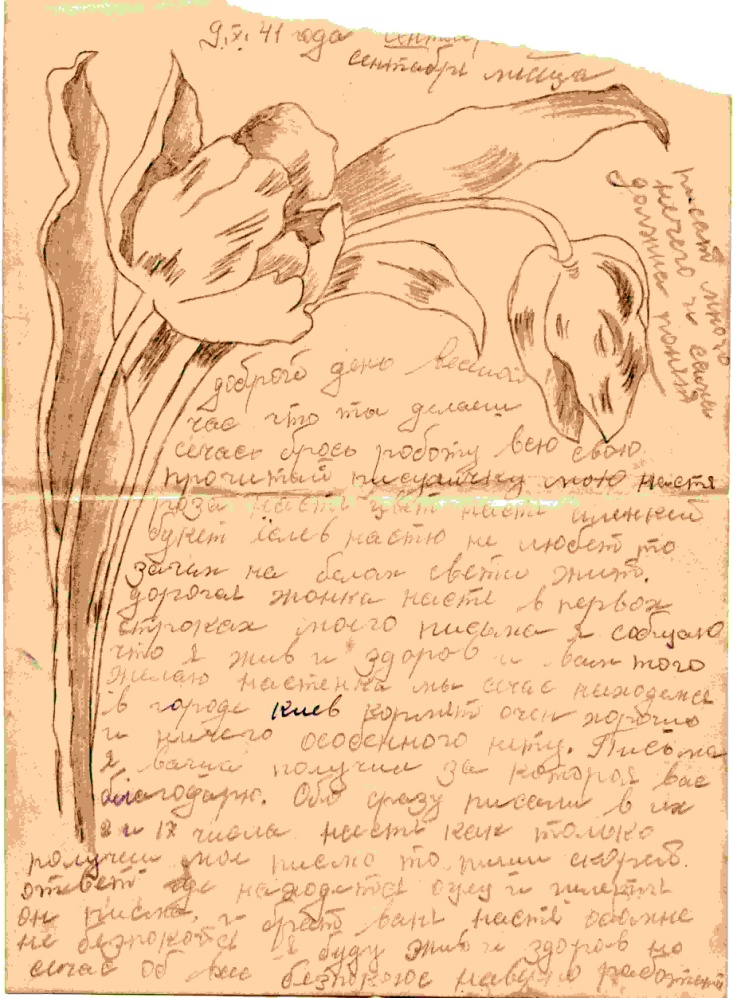 9.IX.41 года
сентябрь месица
писат много
нечего и самы
должна понят
доброго день веселой
час что ты делаеш
сечась брось роботу всю свою
прочитай писулечку мою настя
роза настя цвет настя
букет если настю не любет то
зачем на белом свети жить.
дорогая жонка настя в первох
строках моего письма я собщаю
что я жив и здоров и вам того
желаю настенка мы сечас находемся
в городе Киев кормят очен хорошо
и ничего особенного нету. Письма
я ваша получил за которая вас
благодарю. Обо сразу писали в их
8 и 17 числа настя как толко
получиш мое писмо то пиши скорей.
ответ где находется
он писма, и брат ваня настя обомне
не безпокойся я буду жив и здоров но
сечас об вас безпокоюс наверно